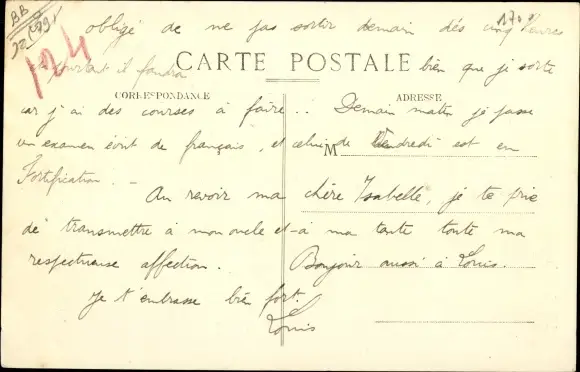 BB
170
obligé de ne pas sortir demain dès cinq heures
124
et pourtant il faudra
CARTE POSTALE
bien que je sorte
CORRESPONDANCE
ADRESSE
car j'ai des courses à faire .. Demain matin je passe
un examen écrit de français, et celui de Vendredi est en
M
Fortification. _
Au revoir ma chère Isabelle, je te prie
de transmettre à mon oncle et à ma tante toute ma
respectueuse affection. Bonjour aussi à Louis.
Je t'embrasse bien fort.
Louis